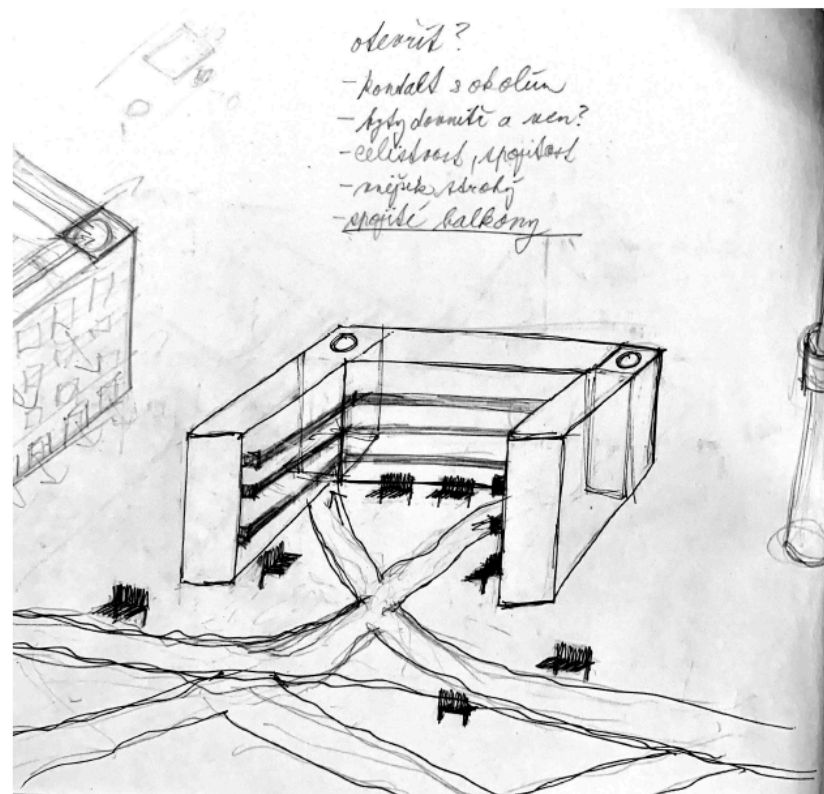 otevřít?
- kontakt s okolím
- byty dovnitř a ven?
- celistvost, spojitost
- vnějšek strohý
- spojité balkony